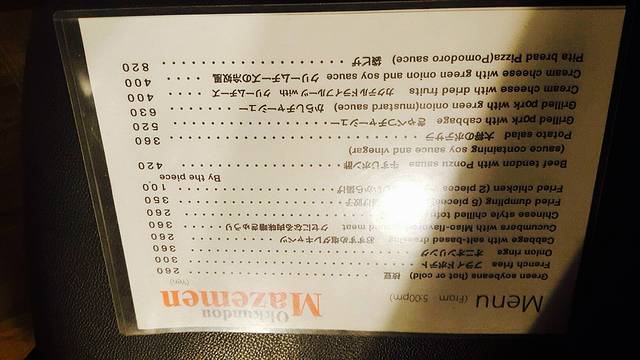 Menu (From 5:00pm)
Okkundou
Mazemen
(Yen)
Green soybeans (hot or cold) 枝豆 260
French fries フライドポテト 300
Onion rings オニオンリング 360
Cabbage with salt-based dressing おすすめ塩ダレキャベツ 260
Cucumbers with Miso-flavored ground meat クセになる肉味噌きゅうり 360
Chinese style chilled tofu 260
Fried dumpling (5 pieces) 揚げ餃子 350
Fried chicken (2 pieces) から揚げ 100
By the piece
Beef tendon with Ponzu sause 牛すじポン酢 420
(sauce containing soy sauce and vinegar)
Potato salad 大将のポテサラ 360
Grilled pork with cabbage キャベツチャーシュー 520
Grilled pork with green onion(mustard sauce) からしチャーシュー 630
Cream cheese with dried fruits カクテルドライフルーツ with クリームチーズ 400
Cream cheese with green onion and soy sauce クリームチーズの冷奴風 400
Pita bread Pizza(Pomodoro sauce) 袋ピザ 820